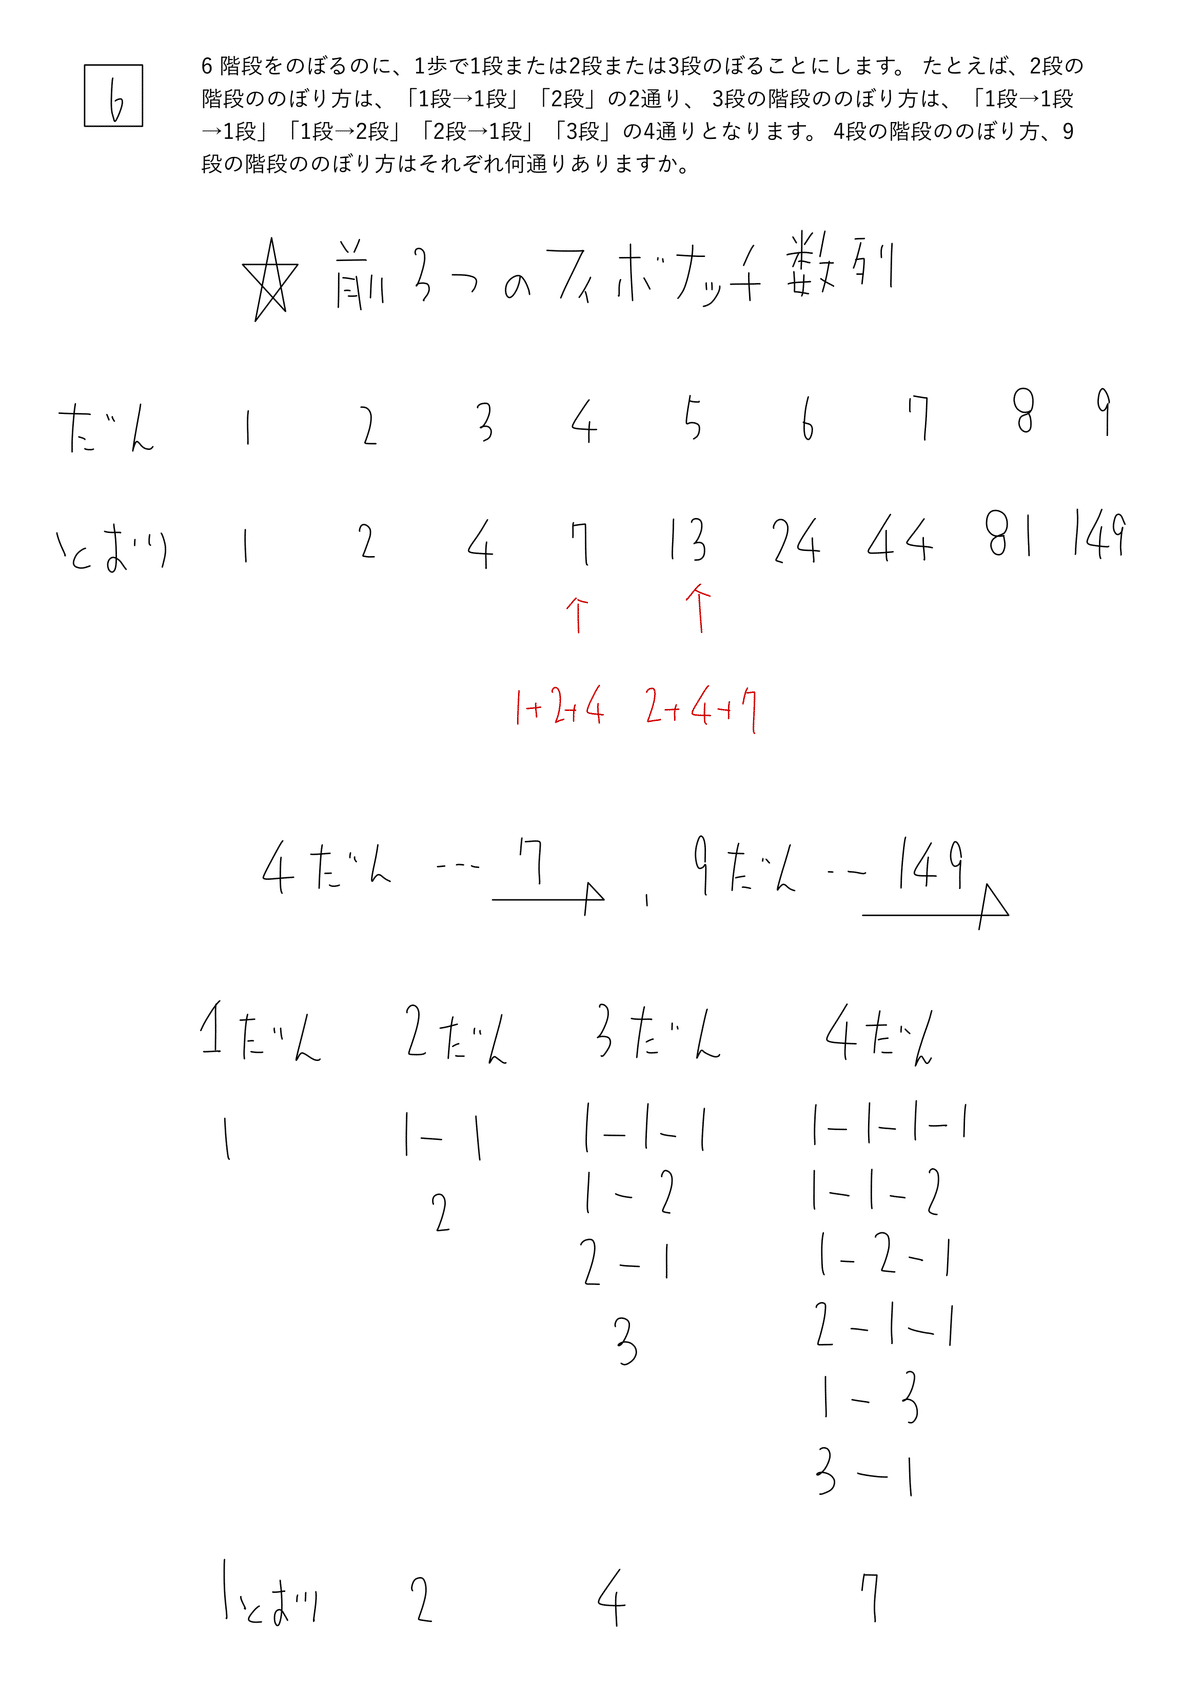 6
6 階段をのぼるのに、1歩で1段または2段または3段のぼることにします。 たとえば、2段の
階段ののぼり方は、「1段→1段」「2段」の2通り、 3段の階段ののぼり方は、「1段→1段
→1段」「1段→2段」「2段→1段」「3段」の4通りとなります。 4段の階段ののぼり方、9
段の階段ののぼり方はそれぞれ何通りありますか。
☆ 前3つのフィボナッチ数列
だん 1 2 3 4 5 6 7 8 9
とおり 1 2 4 7 13 24 44 81 149
↑ ↑
1+2+4 2+4+7
4だん --- 7 , 9だん --- 149
1だん 2だん 3だん 4だん
1 1-1 1-1-1 1-1-1-1
2 1-2 1-1-2
2-1 1-2-1
3 2-1-1
1-3
3-1
1とおり 2 4 7